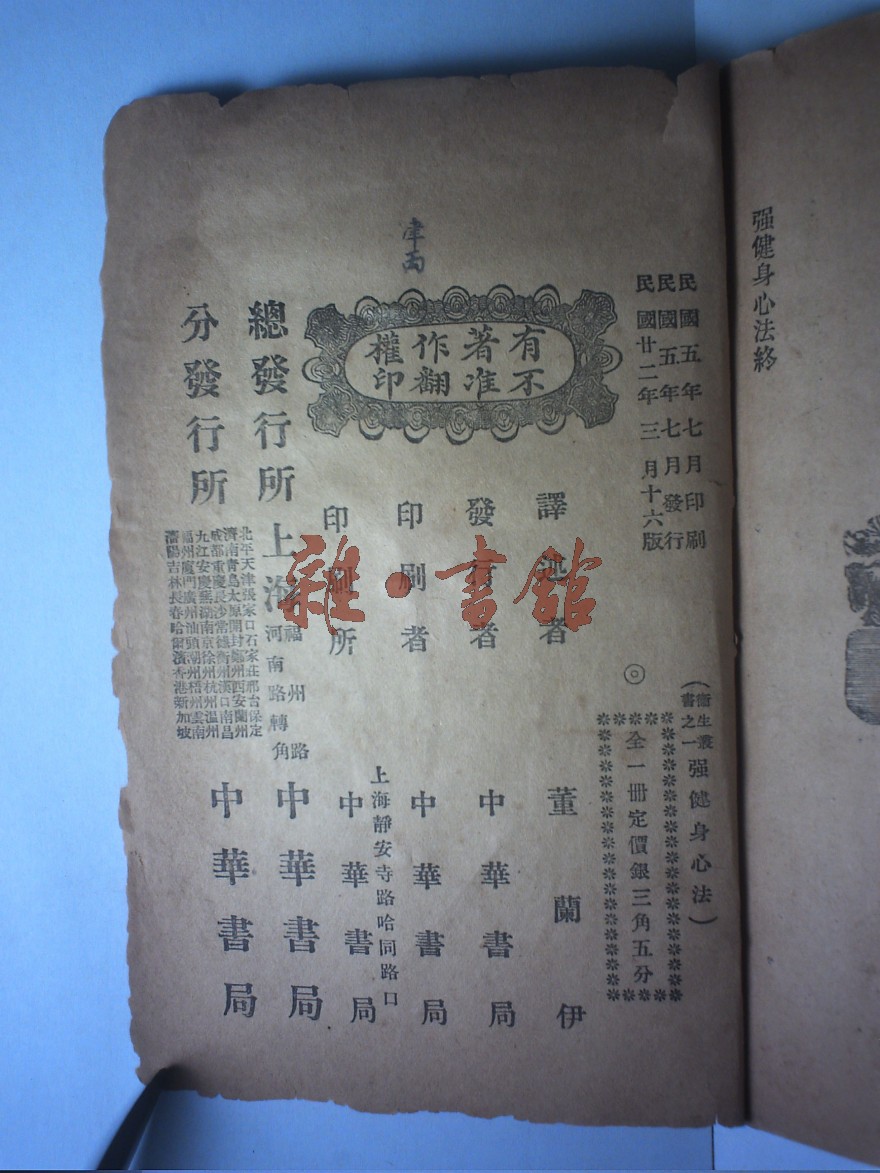 强健身心法終
民國五年七月印刷
民國五年七月發行
民國廿二年三月十六版
（衛生叢書之一强健身心法）
◎全一冊定價銀三角五分
有不
著准
作翻
權印
譯述者 董蘭伊
發行者 中華書局
印刷者 中華書局
上海靜安寺路哈同路口
印刷所 中華書局
總發行所 上海福州路河南路轉角 中華書局
分發行所 中華書局
北平天津張家口石家莊邢台保定
濟南青島太原開封鄭州西安蘭州
成都重慶長沙常德衡州漢口南昌
九江安慶蕪湖南京徐州杭州溫州
福州廈門廣州汕頭潮州梧州雲南
瀋陽吉林長春哈爾濱香港新加坡
雜·書館